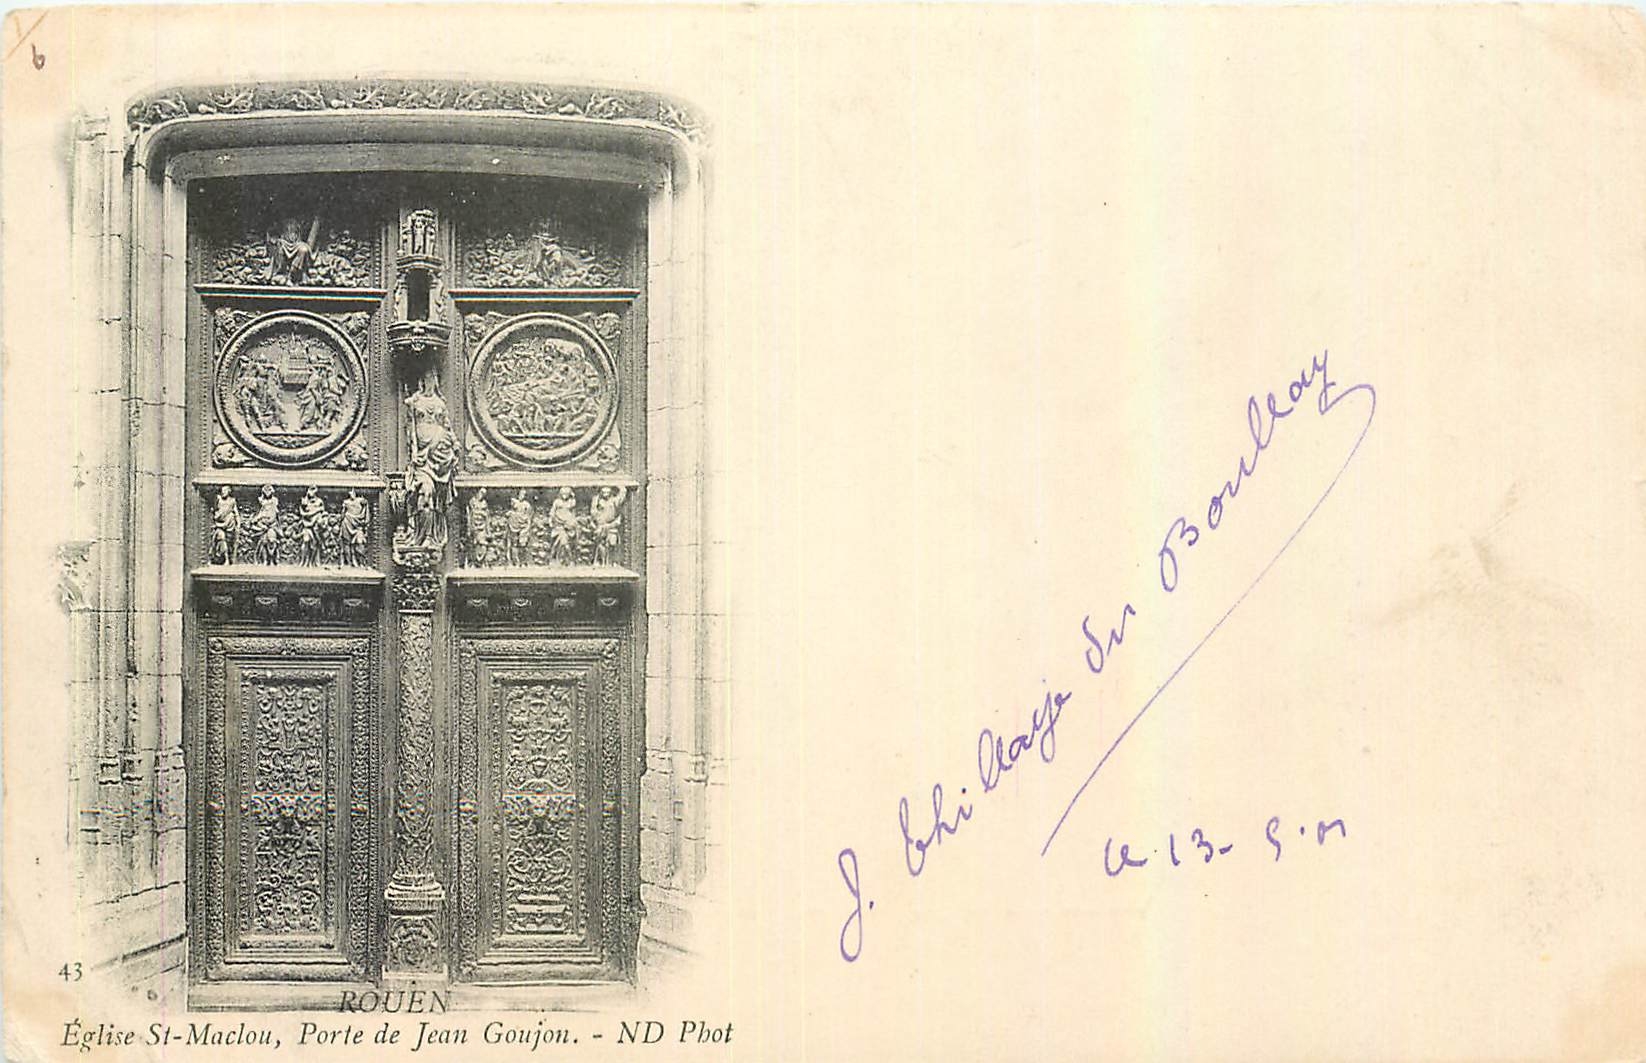 6
43
ROUEN
Église St-Maclou, Porte de Jean Goujon. - ND Phot
J. Thillaye du Boullay
le 13-